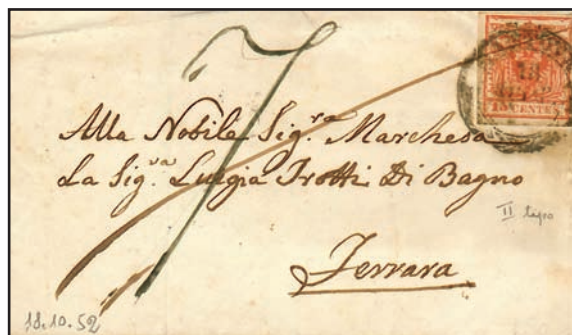 7
18
15 CENTES
Alla Nobile Sig.ra Marchesa
La Sig.ra Luigia Trotti Di Bagno
II tipo
Ferrara
18.10.52